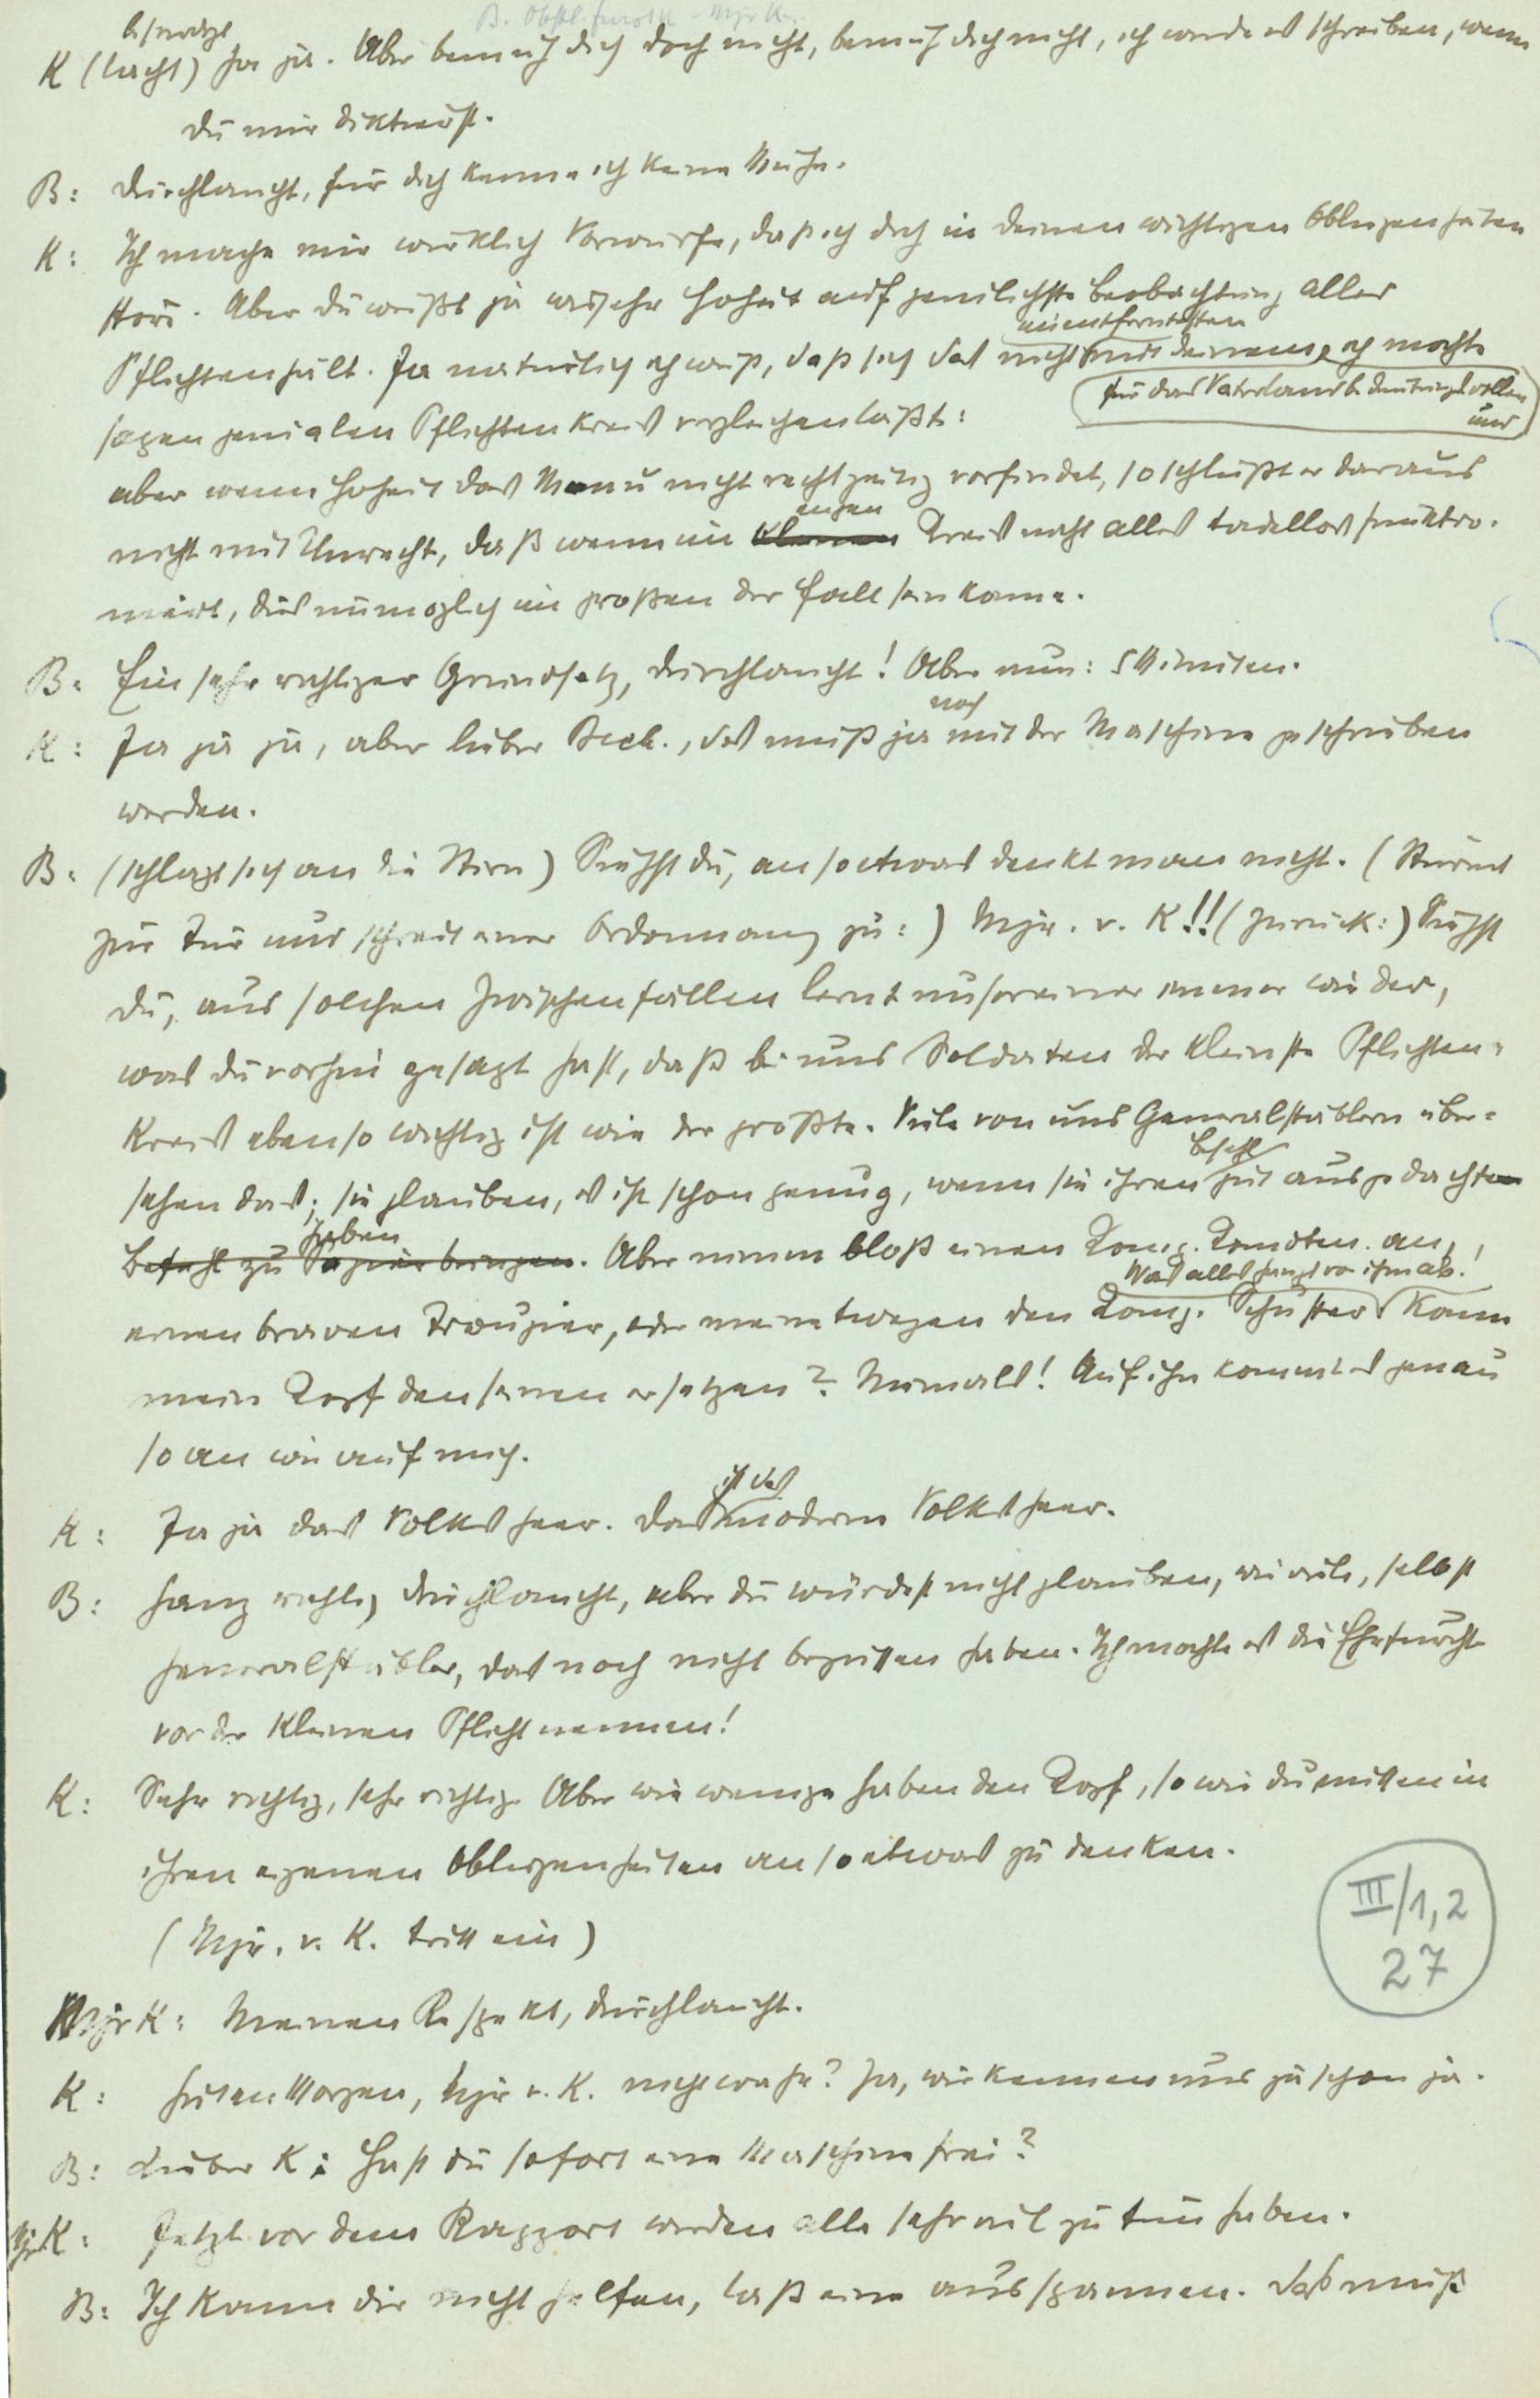 B. Obstl. furcht - Mjr K.
besorgt
K (lacht) Ja ja. Aber bemüh dich doch nicht, bemüh dich nicht, ich werde es schreiben, wenn
Du mir diktierst.
B: Durchlaucht, für dich kenne ich keine Mühe.
K: Ich mache mir wirklich Vorwürfe, daß ich dich in deinen wichtigen Obliegenheiten
störe. Aber du weißt ja wie sehr Hoheit auf peinlichste Beobachtung aller
im entferntesten
Pflichten hält. Ja natürlich ich weiß, daß sich das nicht mit deinem, ich möchte
für das Vaterland bedeutungsvollen
und
sagen genialen Pflichtenkreis vergleichen läßt:
aber wenn Hoheit das Menu nicht rechtzeitig vorfindet, so schließt er daraus
engen
nicht mit Unrecht, daß wenn im kleinen Kreis nicht alles tadellos funktio-
niert, dies unmöglich im großen der Fall sein kann.
B: Ein sehr richtiger Grundsatz, Durchlaucht! Aber nun: 5 Minuten.
noch
K: Ja ja ja, aber lieber Bech., das muß ja mit der Maschine geschrieben
werden.
B: (schlägt sich an die Stirn) Siehst du, an so etwas denkt man nicht. (Stürmt
zur Tür und schreit einer Ordonnanz zu:) Mjr. v. K!! (zurück:) Siehst
du, aus solchen Zwischenfällen lernt unsereiner immer wieder,
was du vorhin gesagt hast, daß bei uns Soldaten der kleinste Pflichten-
kreis ebenso wichtig ist wie der größte. Viele von uns Generalstäblern über-
Befehl
sehen das; sie glauben, es ist schon genug, wenn sie ihren gut ausgedachten
haben
Befehl zu Papier bringen. Aber nimm bloß einen Komp. Komdten. an,
Was alles hängt von ihm ab!
einen braven Troupier, oder meinetwegen den Komp. Schuster! Kann
mein Kopf den seinen ersetzen? Niemals! Auf ihn kommt es genau
so an wie auf mich.
ist das
K: Ja ja das Volksheer. Das moderne Volksheer.
B: Ganz richtig Durchlaucht, aber du würdest nicht glauben, wie viele, selbst
Generalstäbler, das noch nicht begriffen haben. Ich möchte es die Ehrfurcht
vor der kleinen Pflicht nennen!
K: Sehr richtig, sehr richtig. Aber wie wenige haben den Kopf, so wie du mitten in
ihren eigenen Obliegenheiten an so etwas zu denken.
(Mjr. v. K. tritt ein)
III/1,2
27
Mjr K: Meinen Respekt, Durchlaucht.
K: Guten Morgen, Mjr v. K. nicht wahr? Ja, wir kennen uns ja schon ja.
B: Lieber K: Hast du sofort eine Maschine frei?
Mjr K: Jetzt vor dem Rapport werden alle sehr viel zu tun haben.
B: Ich kann dir nicht helfen, laß eine ausspannen. Das muß